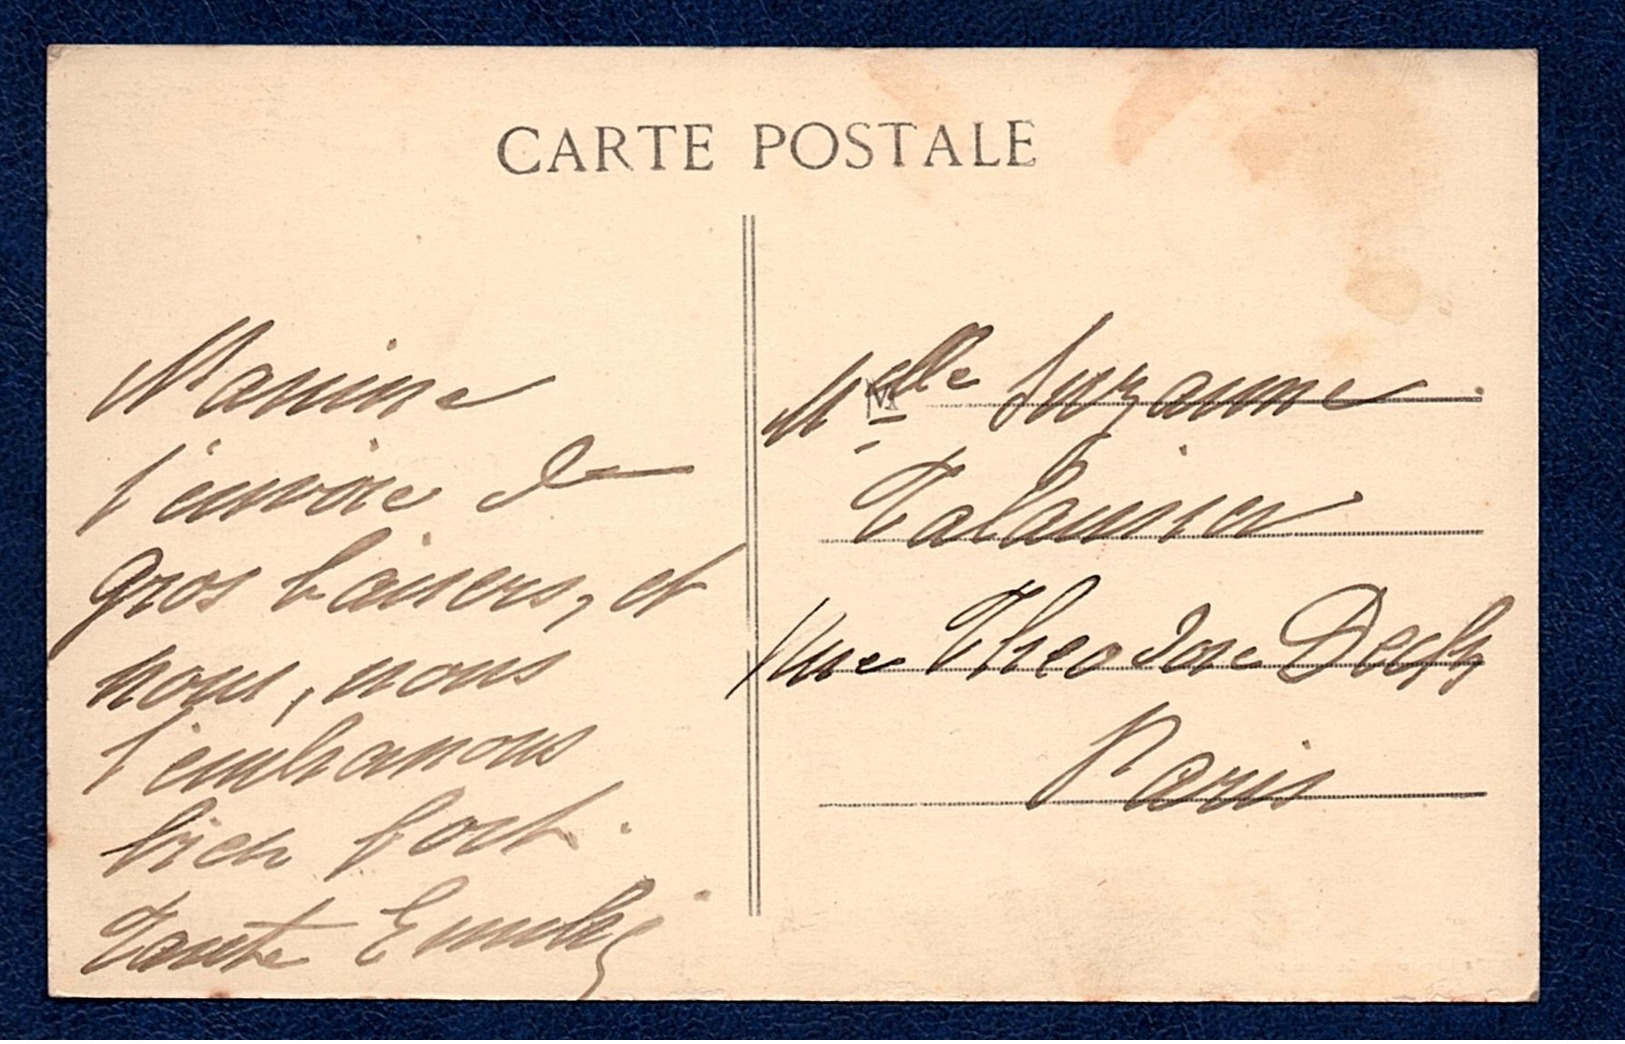 CARTE POSTALE
Manine
t'envoie de
gros baisers, et
nous, nous
t'embrassons
bien fort.
Tante Emilie
M
Melle Suzanne
Rue Theodore Deck
Paris